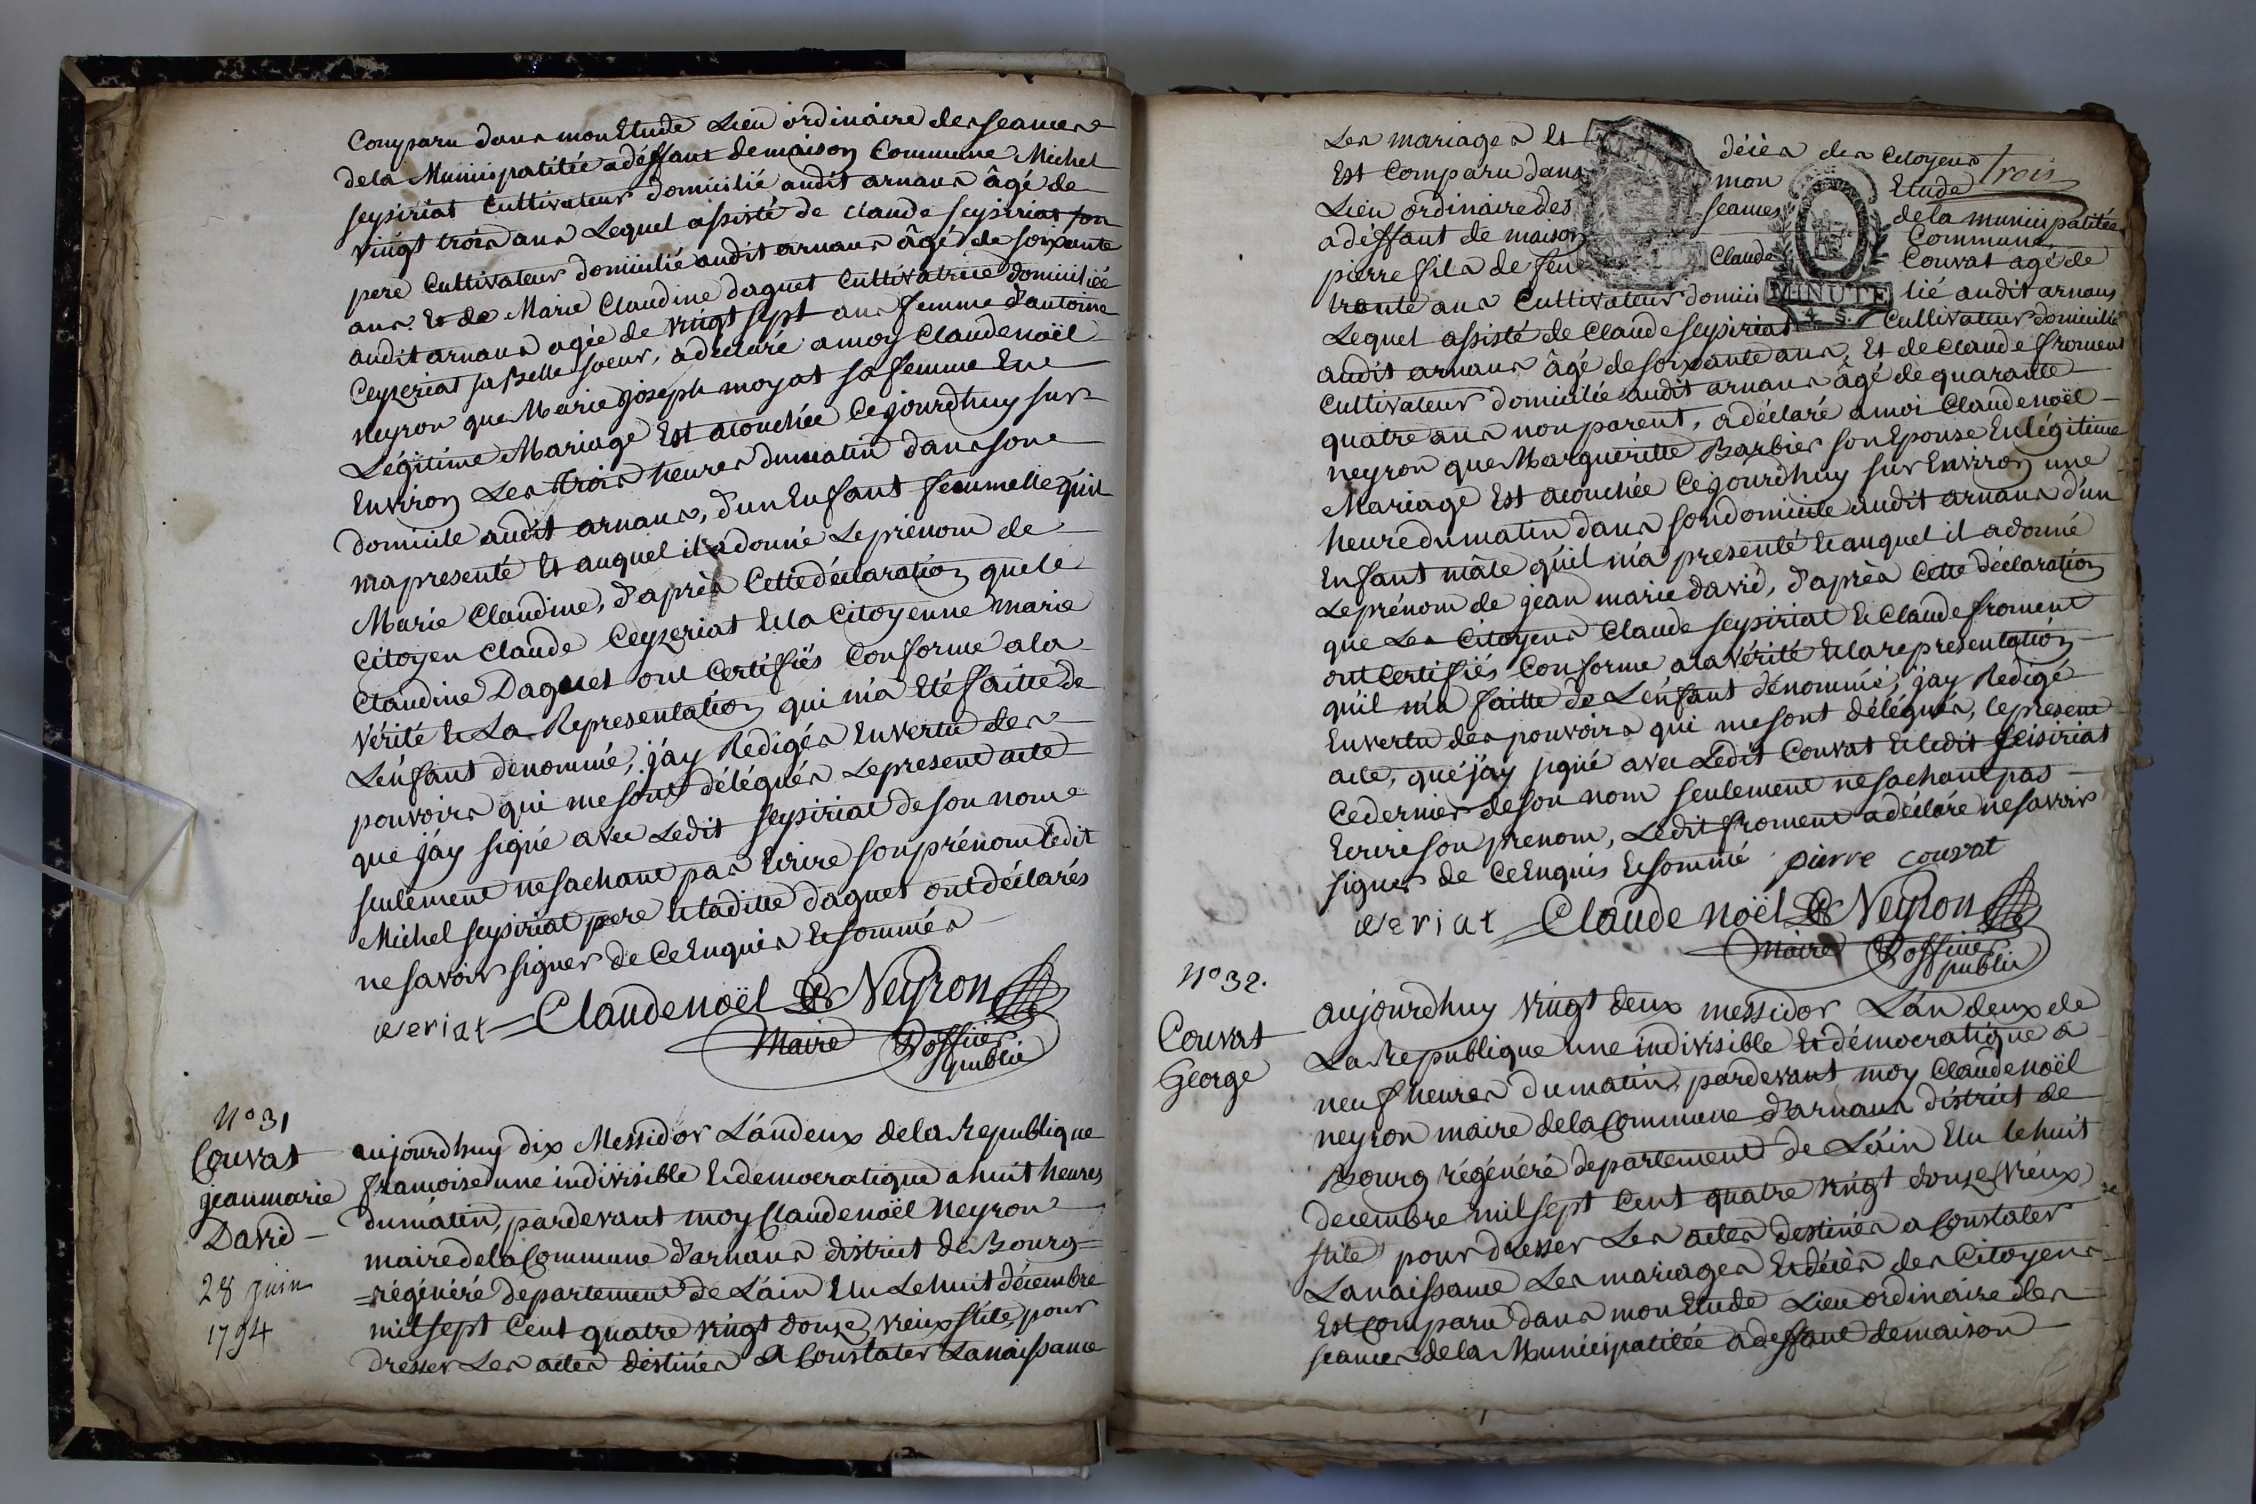 Comparu dans mon Etude Lieu ordinaire des seances
de la Municipatitée a déffaut de maison Commune Michel
seysiriat Cultivateur domicilié audit arnans âgé de
vingt trois ans Lequel assisté de claude seysiriat son
pere Cultivateur domicilié audit arnans âgé de soixante
ans. Et de Marie Claudine daguet Cultivatrice domiciliée
audit arnans agée de vingt sept ans femme d'antoine
Ceyzeriat sa Belle soeur, a déclaré a moy Claude noël
neyron que Marie joseph moyat sa femme En
Légitime Mariage Est acouchée Cejourdhuy sur
Environ Les trois heures du matin dans son
domicile audit arnans, d'un Enfant femmelle quil
ma presenté Et auquel il a donné Le prénom de
Marie Claudine, d'après Cette déclaration que le
Citoyen Claude Ceyzeriat Et la Citoyenne marie
Claudine Daguet ont Certifiés Conforme a la
vérité Et La Representation qui m'a Eté faitte de
L'enfant dénommé, j'ay Redigés En vertu des
pouvoirs qui me sont délégués Le present acte
que j'ay signé avec Ledit seysiriat de son nom
seulement ne sachant pas Ecrire son prénom Ledit
Michel seysiriat pere Et laditte daguet ont déclarés
ne savoir signer de Ce Enquis Et sommés
Claude noël Neyron
Maire & officier
public
N° 31
Couvat
jean marie
David
28 juin
1794
aujourdhuy dix Messidor L'an deux de la Republique
francoise une indivisible Et democratique a huit heures
du matin, pardevant moy Claude noël Neyron
maire de la Commune d'arnans district de Bourg=
=régénéré departement de L'ain Elu Le huit décembre
mil sept Cent quatre vingt douze vieux stile, pour
dresser Les actes destinés a Constater La naissance
Les mariages Et décès des Citoyens
trois
Est Comparu dans mon Etude
Lieu ordinaire des seances de la municipatitée
a déffaut de maison Commune
pierre fils de feu Claude Couvat agé de
trente ans Cultivateur domicilié audit arnans
MINUTE
4. S.
Lequel assisté de Claude seysiriat Cultivateur domicilié
audit arnans âgé de soixante ans, Et de Claude froment
Cultivateur domicilié audit arnans âgé de quarante
quatre ans non parent, a déclaré a moi Claude noël
neyron que Margueritte Barbier son Epouse En légitime
Mariage Est acouchée Cejourdhuy sur Environ une
heure du matin dans son domicile audit arnans d'un
Enfant mâle qu'il m'a presenté Et auquel il a donné
Le prénom de jean marie david, d'après Cette déclaration
que Les Citoyens Claude seysiriat Et Claude froment
ont Certifiés Conforme a la vérité Et la representation
qu'il m'a faitte de L'enfant dénommé, j'ay Redigé
En vertu des pouvoirs qui me sont délégués, le present
acte, que j'ay signé avec Ledit Couvat Et ledit seisiriat
Ce dernier de son nom seulement ne sachant pas
Ecrire son prenom, Ledit froment a déclaré ne savoir
signer de Ce Enquis Et sommé pierre couvat
Claude noël Neyron
Maire & officier
public
N° 32.
Couvat
George
aujourdhuy vingt deux messidor L'an deux de
La Republique une indivisible Et démocratique a
neuf heures du matin, pardevant moy Claude noël
neyron maire de la Commune d'arnans district de
Bourg régénéré departement de L'ain Elu le huit
decembre mil sept Cent quatre vingt douze (vieux
stile) pour dresser Les actes destinés a Constater
La naissance Les mariages Et décès des Citoyens
Est Comparu dans mon Etude Lieu ordinaire des
seances de la Municipatitée a deffaut de maison